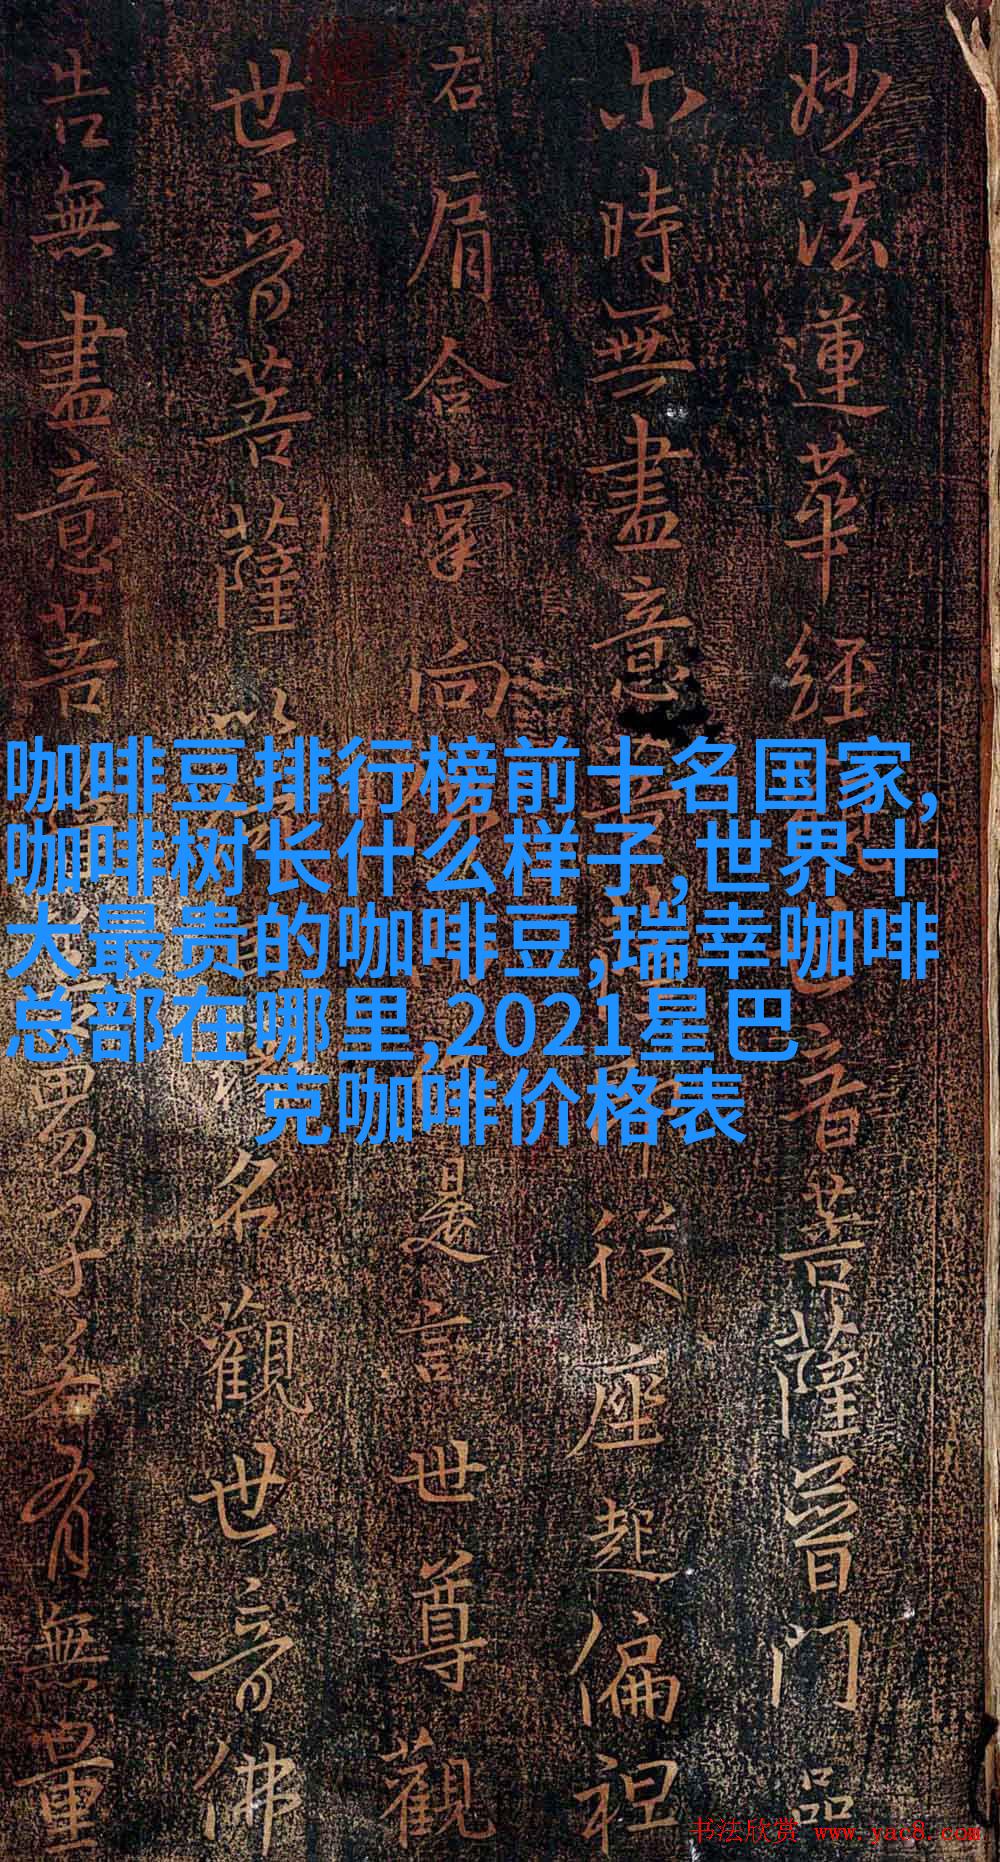 妙法蓮華經世音菩薩普門品
尒時無盡意菩從座起偏袒
右肩合掌向是言世尊觀
世音菩薩名觀世音佛
告無盡意菩男子若有無量
咖啡豆排行榜前十名国家,
咖啡树长什么样子,世界十
大最贵的咖啡豆,瑞幸咖啡
总部在哪里,2021星巴
克咖啡价格表
书法欣赏 www.yac8.com